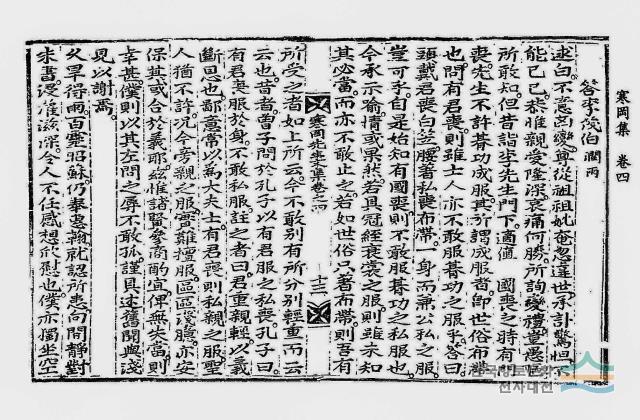 寒岡集 卷四
答李茂伯 潤雨
逑白。不意凶變。尊從祖祖妣奄忽違世。承訃驚怛。不
能已已。恭惟親愛隆深。哀痛何勝。所詢變禮。豈愚
所敢知。但昔詣李先生門下。適値 國喪之時。有
喪。先生不許朞功成服。其所謂成服者。卽世俗布帶
也。問有君喪。則雖士人亦不敢服朞功之服乎。答曰。
頭戴君喪白笠。腰著私喪布帶。一身而兼公私之服
豈可乎。自是始知有國喪。則不敢服朞功之私服也。
今承示喩。情或果然。若具冠絰衰裳之服。則雖未知
其必當。而亦不敢止之。若如世俗只著布帶。則吾有
寒岡先生文集卷之四 十三
所受之者如上所云。今不敢別有所分別輕重而云
云也。昔者曾子問於孔子。以有君服之私喪。孔子曰。
有君喪服於身。不敢私服。註之者曰。君重親輕。以義
斷恩也。鄙意常以爲大夫士有君喪。則私親之服。聖
人猶不許。況今旁親之服。實難擅服。區區淺臆。亦安
保其或合於義耶。惟諸賢參商酌宜。俾無失當則
幸甚。僕則以其左問之辱。不敢孤。謹具述舊聞與淺
見以謝焉。
久旱得雨。百蟲昭蘇。仍奉惠翰。就認所患向間。靜對
朱書。滋深。令人不任感想欣慰也。僕亦獨坐空
전자대전